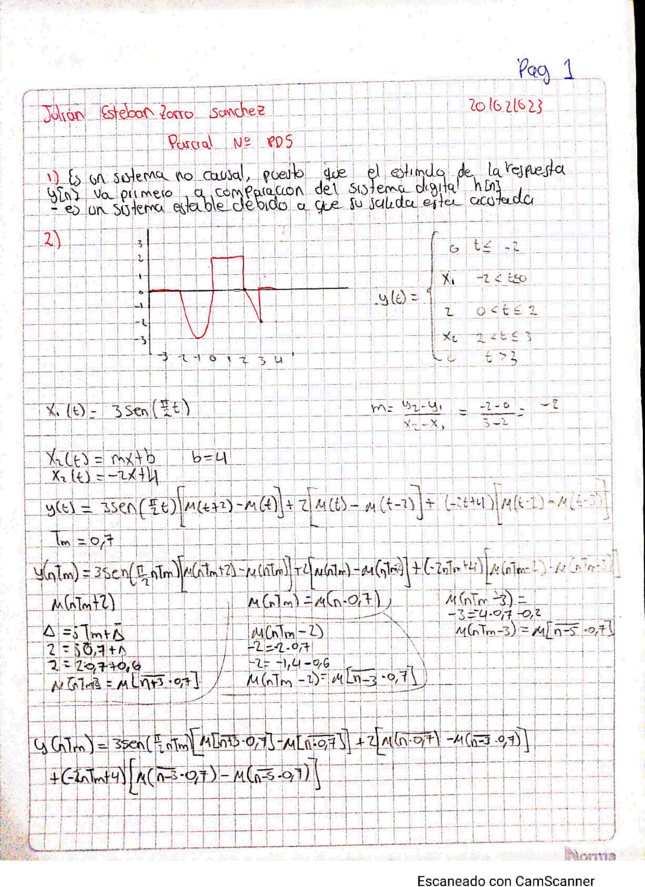 Pag 1
Julián Esteban Zorro Sanchez 20162623
Parcial Nº PDS
1) Es un sistema no causal, puesto que el estimulo de la respuesta
y[n] va primero a comparacion del sistema digital h[n]
- es un sistema estable debido a que su salida esta acotada
2)
3
2
1
0
-1
-2
-3
-3 -2 -1 0 1 2 3 4
y(t) =
0 t≤ -2
X₁ -2<t≤0
2 0<t≤2
X₂ 2<t≤3
t>3
X₁(t) = 3sen(π/2 t)
m= y₂-y₁/x₂-x₁ = -2-0/3-2 = -2
X₂(t) = mx+b b=4
X₂(t) = -2x+4
y(t) = 3sen(π/2 t)[μ(t+2)-μ(t)]+2[μ(t)-μ(t-2)]+(-2t+4)[μ(t-2)-μ(t-3)]
Tm = 0,7
y(nTm)=3sen(π/2 nTm)[μ(nTm+2)-μ(nTm)]+2[μ(nTm)-μ(nTm-2)]+(-2nTm+4)[μ(nTm-2)-μ(nTm-3)]
μ(nTm+2) μ(nTm)=μ(n·0,7) μ(nTm-3)=
-3=-4·0,7-0,2
Δ=jTm+Δ μ(nTm-2) μ(nTm-3)=μ[n-5·0,7]
2=j0,7+Δ -2=-2·0,7
2=2·0,7+0,6 -2=-1,4-0,6
=μ[n+3·0,7] μ(nTm-2)=μ[n-3·0,7]
y(nTm)=3sen(π/2 nTm)[μ[n+3·0,7]-μ[n·0,7]]+2[μ(n·0,7)-μ(n-3·0,7)]
+(-2nTm+4)[μ(n-3·0,7)-μ(n-5·0,7)]
Norma
Escaneado con CamScanner